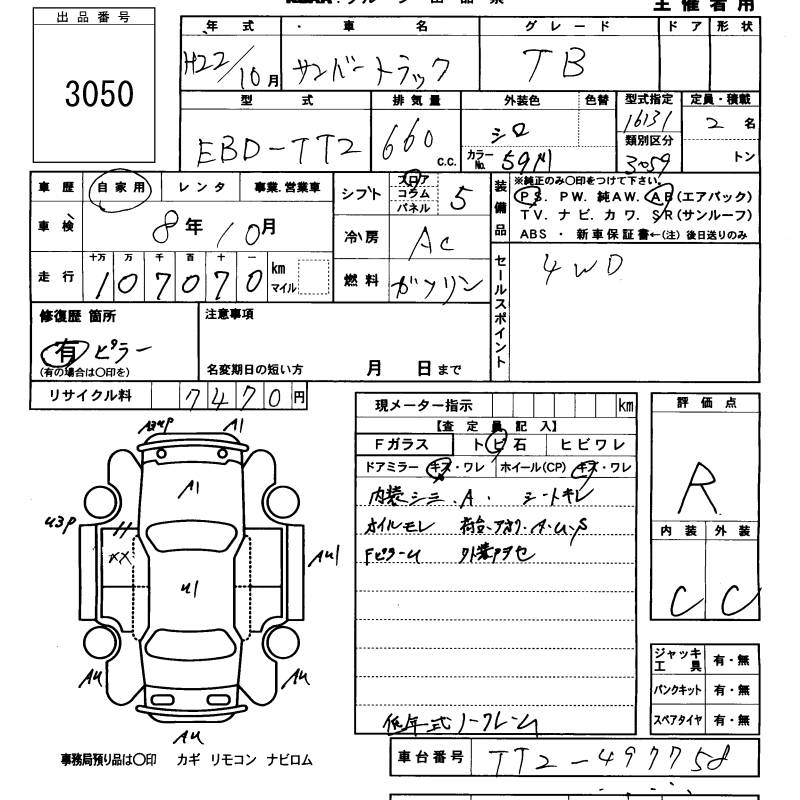 主催者用
出品番号
3050
年式 車名 グレード ドア 形状
H22/10月 サンバートラック TB
型式 排気量 外装色 色替 型式指定 定員・積載
EBD-TT2 660 c.c. シロ 16131 2名
カラーNo. 類別区分 3059 トン
車歴 自家用 レンタ 事業.営業車
シフト フロア コラム パネル 5
装備品 ※純正のみ〇印をつけて下さい。
PS. PW. 純AW. AB(エアバック)
TV. ナビ. カワ. SR(サンルーフ)
ABS ・ 新車保証書←(注) 後日送りのみ
車検 8年10月
冷房 AC
走行 十万 万 千 百 十 一
107070 km マイル
燃料 ガソリン
セールスポイント 4WD
修復歴 箇所
有 ピラー
(有の場合は〇印を)
注意事項
名変期日の短い方 月 日まで
リサイクル料 7470円
現メーター指示 km
【査定員記入】
Fガラス トビ石 ヒビワレ
ドアミラー キズ・ワレ ホイール(CP) キズ・ワレ
内装シミ.A. シートキレ
オイルモレ 荷台.アオリ.A.U.S
FピラーU 外装アセ
低年式ノークレーム
評価点
R
内装 外装
C C
A1
A1
U3P
XX
U1
AU1
AU
AU
AU
ジャッキ工具 有・無
パンクキット 有・無
スペアタイヤ 有・無
事務局預り品は〇印 カギ リモコン ナビロム
車台番号 TT2-497758